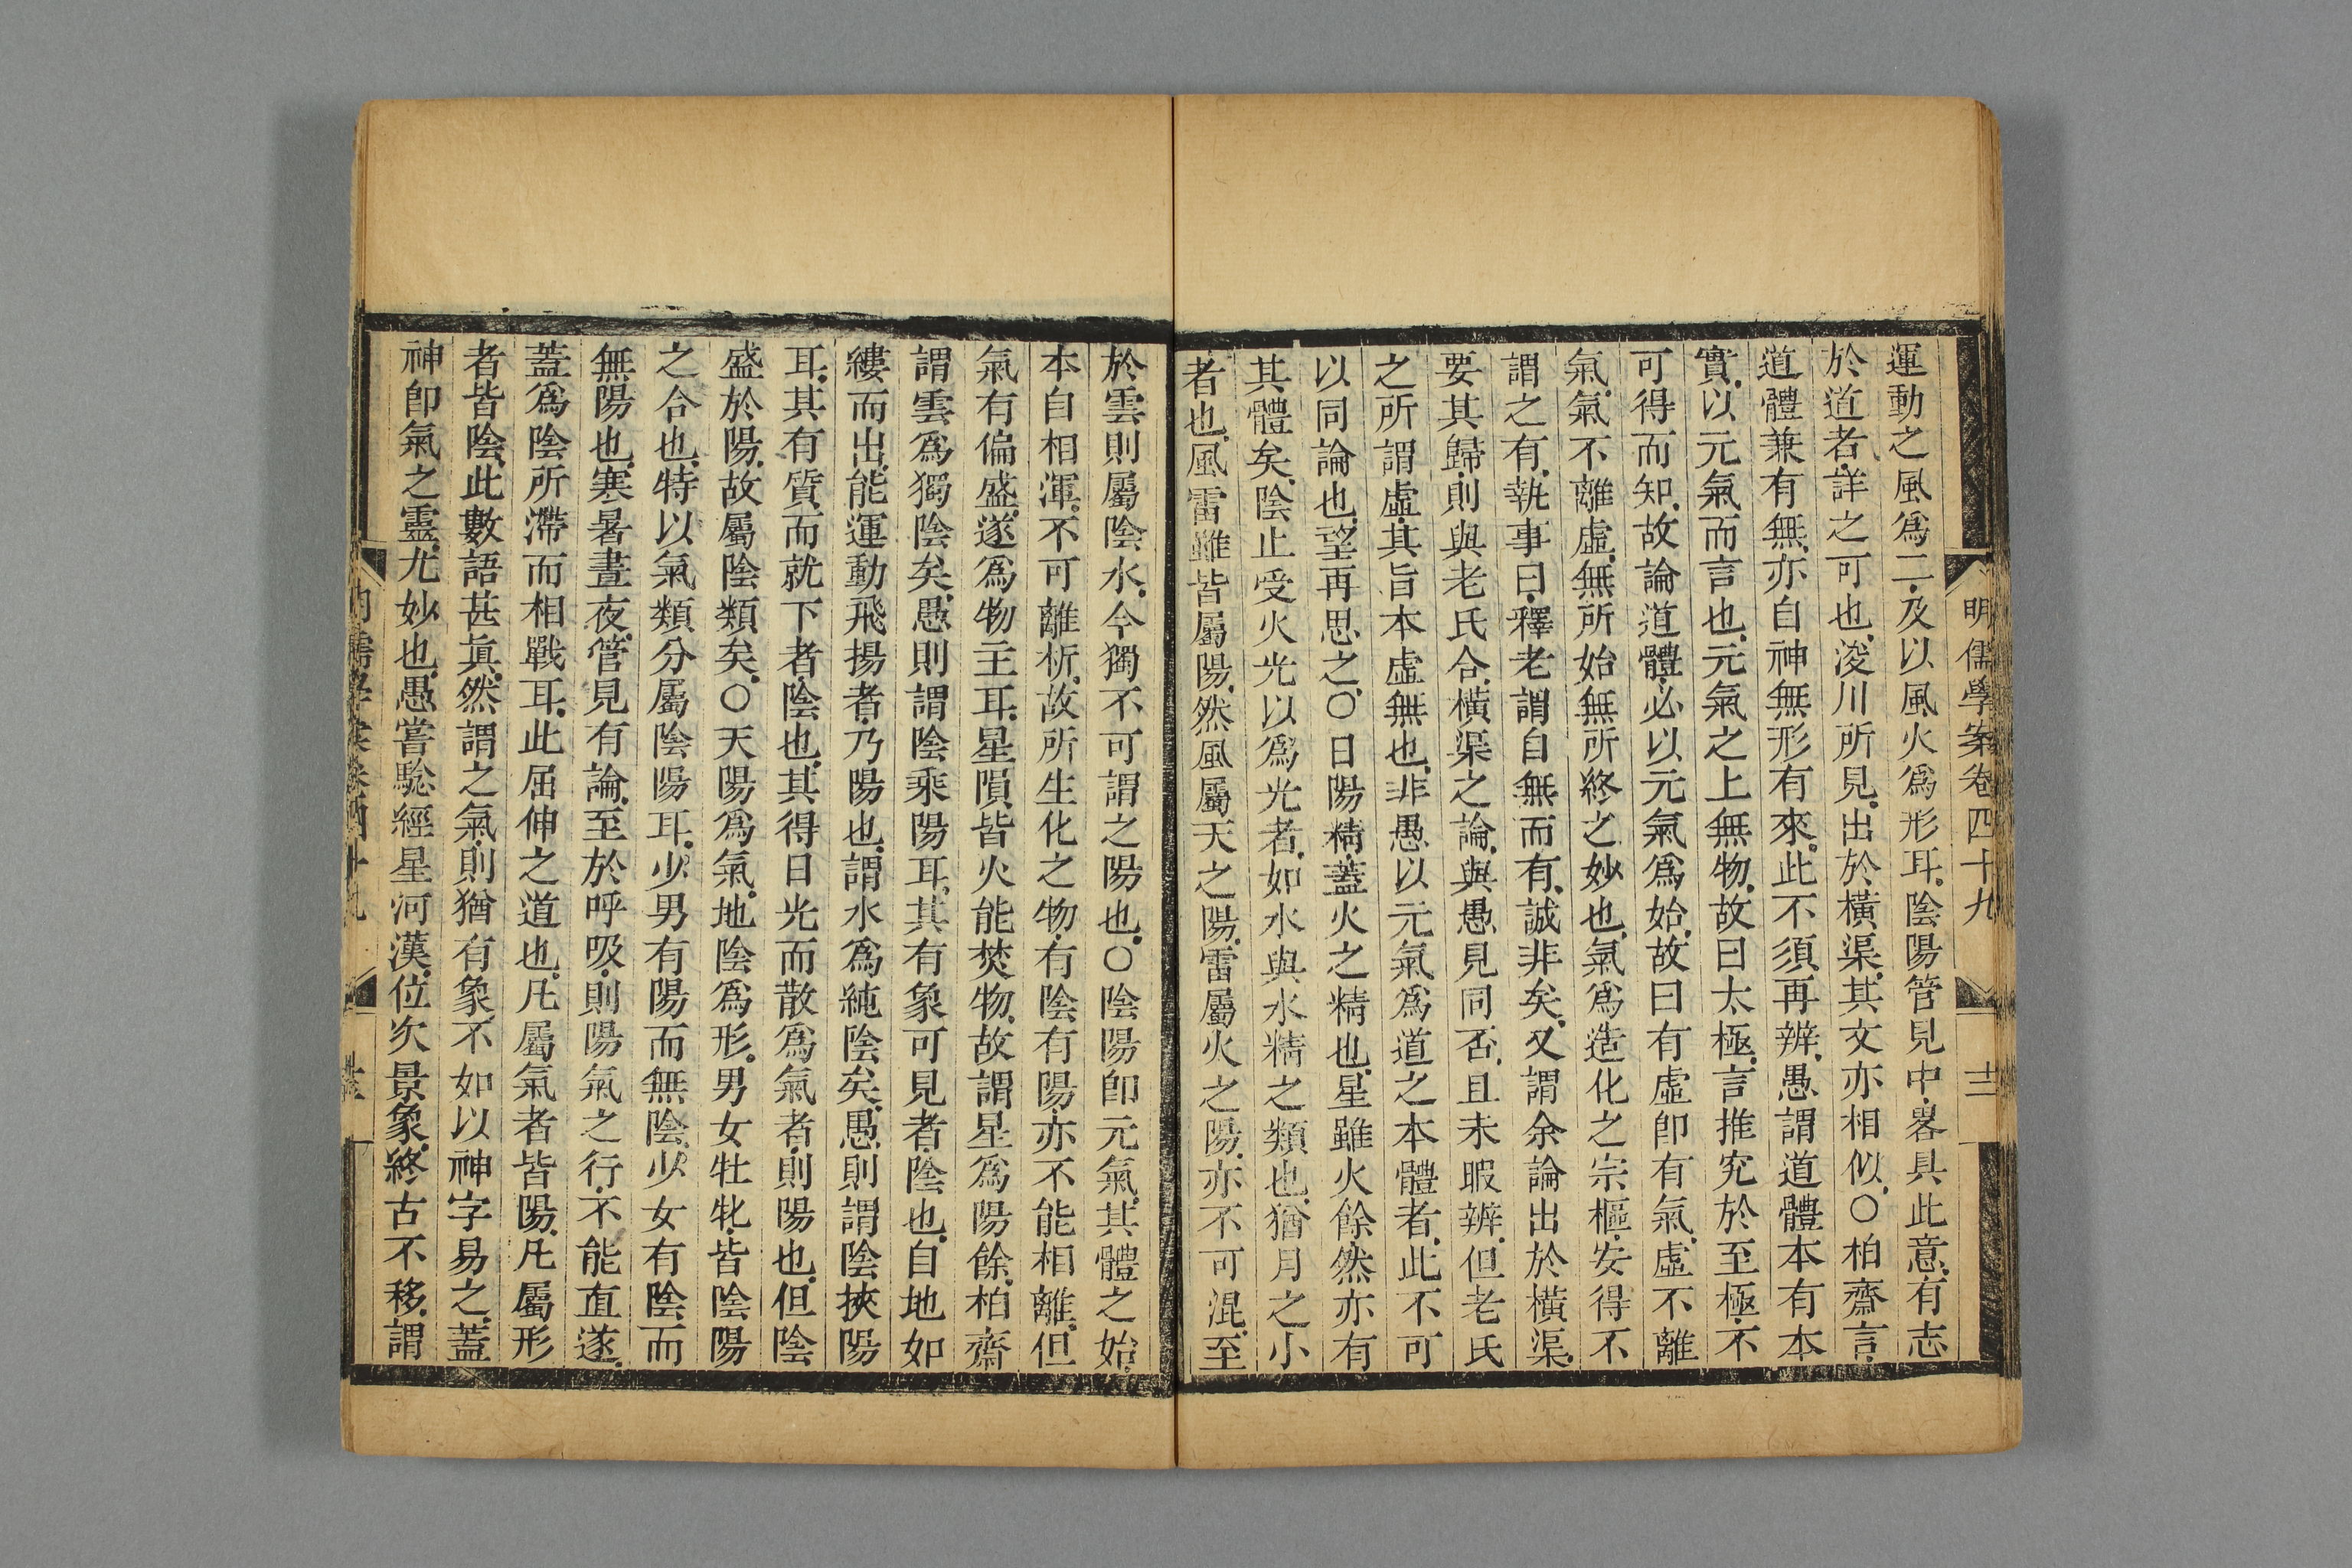 明儒學案卷四十九
十二
運動之風爲二及以風火爲形耳陰陽管見中畧具此意有志
於道者詳之可也浚川所見出於橫渠其文亦相似○柏齋言
道體兼有無亦自神無形有來此不須再辨愚謂道體本有本
實以元氣而言也元氣之上無物故曰太極言推究於至極不
可得而知故論道體必以元氣爲始故曰有虛卽有氣虛不離
氣氣不離虛無所始無所終之妙也氣爲造化之宗樞安得不
謂之有執事曰釋老謂自無而有誠非矣又謂余論出於橫渠
要其歸則與老氏合橫渠之論與愚見同否且未暇辨但老氏
之所謂虛其旨本虛無也非愚以元氣爲道之本體者此不可
以同論也望再思之○日陽精蓋火之精也星雖火餘然亦有
其體矣陰止受火光以爲光者如水與水精之類也猶月之小
者也風雷雖皆屬陽然風屬天之陽雷屬火之陽亦不可混至
於雲則屬陰水今獨不可謂之陽也○陰陽卽元氣其體之始
本自相渾不可離析故所生化之物有陰有陽亦不能相離但
氣有偏盛遂爲物主耳星隕皆火能焚物故謂星爲陽餘柏齋
謂雲爲獨陰矣愚則謂陰乘陽耳其有象可見者陰也自地如
縷而出能運動飛揚者乃陽也謂水爲純陰矣愚則謂陰挾陽
耳其有質而就下者陰也其得日光而散爲氣者則陽也但陰
盛於陽故屬陰類矣○天陽爲氣地陰爲形男女牡牝皆陰陽
之合也特以氣類分屬陰陽耳少男有陽而無陰少女有陰而
無陽也寒暑晝夜管見有論至於呼吸則陽氣之行不能直遂
蓋爲陰所滯而相戰耳此屈伸之道也凡屬氣者皆陽凡屬形
者皆陰此數語甚真然謂之氣則猶有象不如以神字易之蓋
神卽氣之靈尤妙也愚嘗驗經星河漢位次景象終古不移謂